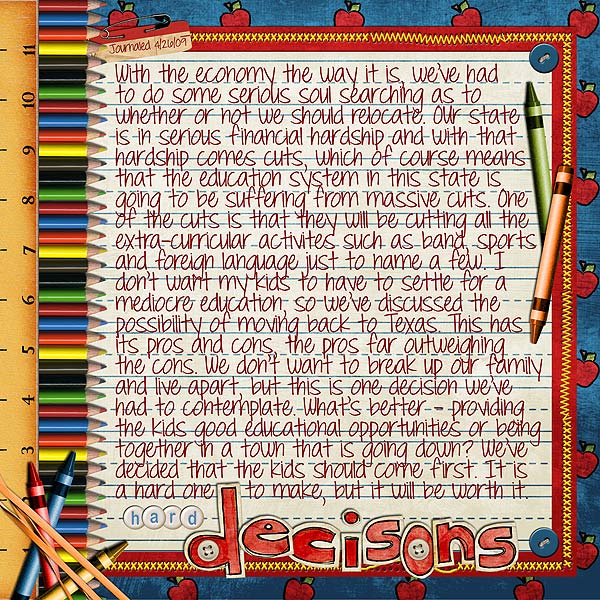 Journaled 4/26/09
With the economy the way it is, we've had
to do some serious soul searching as to
whether or not we should relocate. Our state
is in serious financial hardship and with that
hardship comes cuts, which of course means
that the education system in this state is
going to be suffering from massive cuts. One
of the cuts is that they will be cutting all the
extra-curricular activites such as band, sports
and foreign language just to name a few. I
don't want my kids to have to settle for a
mediocre education, so we've discussed the
possibility of moving back to Texas. This has
its pros and cons, the pros far outweighing
the cons. We don't want to break up our family
and live apart, but this is one decision we've
had to contemplate. What's better - providing
the kids good educational opportunities or being
together in a town that is going down? We've
decided that the kids should come first. It is
a hard one to make, but it will be worth it.
hard
decisons
11
10
9
8
7
6
5
4